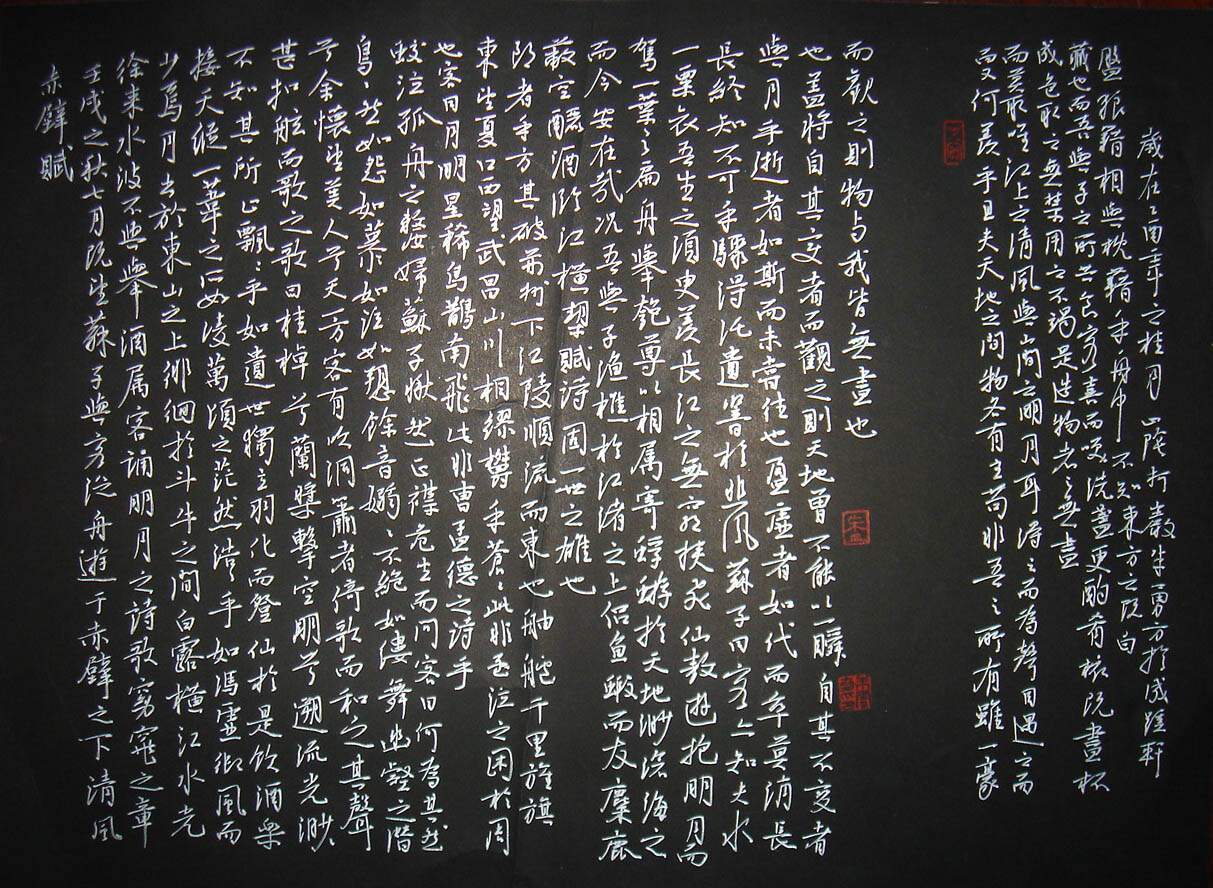 赤壁賦
壬戌之秋七月既望蘇子與客泛舟遊于赤壁之下清風
徐來水波不興舉酒属客誦明月之詩歌窈窕之章
少焉月出於東山之上徘徊於斗牛之間白露橫江水光
接天縱一葦之所如凌萬頃之茫然浩〻乎如馮虛御風而
不知其所止飄〻乎如遺世獨立羽化而登仙於是飲酒樂
甚扣舷而歌之歌曰桂棹兮蘭槳擊空明兮溯流光渺〻
兮余懷望美人兮天一方客有吹洞簫者倚歌而和之其聲
烏〻然如怨如慕如泣如訴餘音嫋〻不絕如縷舞幽壑之潛
蛟泣孤舟之嫠婦蘇子愀然正襟危坐而問客曰何為其然
也客曰月明星稀烏鵲南飛此非曹孟德之詩乎
東望夏口西望武昌山川相繆鬱乎蒼〻此非孟德之困於周
郎者乎方其破荊州下江陵順流而東也舳艫千里旌旗
蔽空釃酒臨江橫槊賦詩固一世之雄也
而今安在哉況吾與子漁樵於江渚之上侶魚蝦而友麋鹿
駕一葉之扁舟舉匏尊以相属寄蜉蝣於天地渺滄海之
一粟哀吾生之須臾羨長江之無窮挾飛仙敖遊抱明月而
長終知不可乎驟得託遺響於悲風蘇子曰客亦知夫水
與月乎逝者如斯而未嘗往也盈虛者如代而卒莫消長
也蓋將自其变者而觀之則天地曾不能以一瞬自其不变者
而觀之則物与我皆無盡也
而又何羨乎且夫天地之間物各有主苟非吾之所有雖一豪
而莫取唯江上之清風與山間之明月耳得之而為聲目遇之而
成色取之無禁用之不竭是造物者之無盡
藏也而吾與子之所共食客喜而笑洗盞更酌肴核既盡杯
盤狼藉相與枕藉乎舟中不知東方之既白
歲在乙酉年之桂月山陰